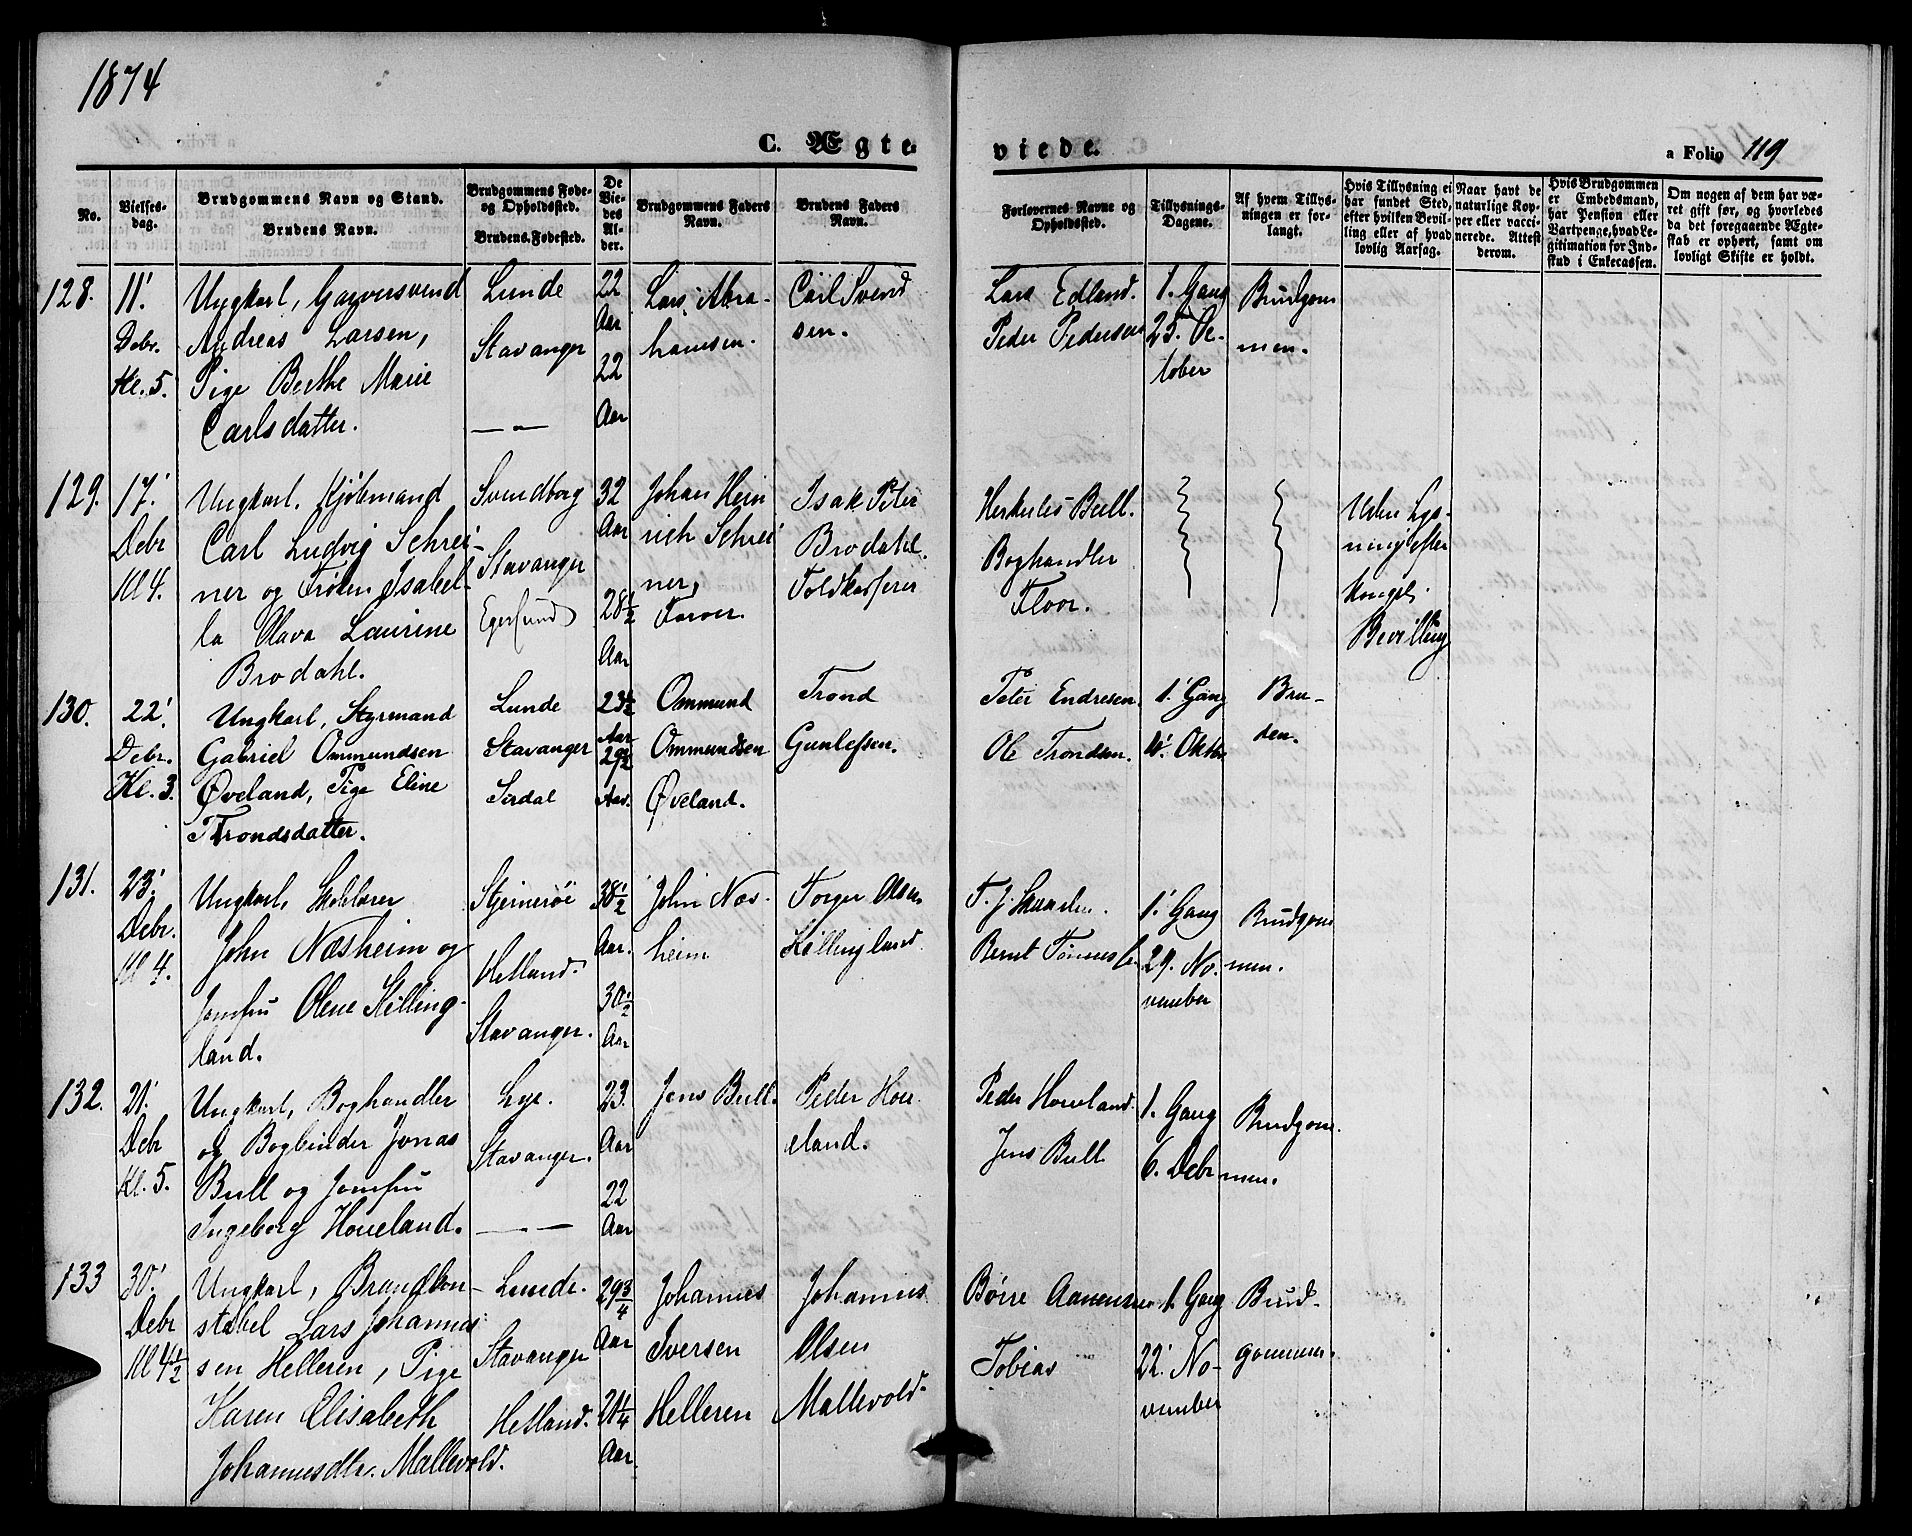 1874
C. Ægte
viede.
a Folio 119
No.
Vielses-
dag.
Brudgommens Navn og Stand.
Brudens Navn.
Brudgommens Føde-
og Opholdssted.
Brudens Fødested.
De
Vie-
des
Al-
der.
Brudgommens Faders
Navn.
Brudens Faders
Navn.
Forlovernes Navne og
Opholdssted.
Tillysnings-
Dagene.
Af hvem Tillys-
ningen er for-
langt.
Hvis Tillysning ei
har fundet Sted,
efter hvilken Bevil-
ling eller af hvad
lovlig Aarsag.
Naar havt de
naturlige Kop-
per eller vacci-
nerede. Attest
derom.
Hvis Brudgommen
er Embedsmand,
har Pension eller
Vartpenge, hvad Le-
gitimation for Ind-
skud i Enkecassen.
Om nogen af dem har væ-
ret gift før, og hvorledes
da det foregaaende Ægte-
skab er ophørt, samt om
lovligt Skifte er holdt.
128.
11'
Debr.
Kl. 5.
Ungkarl, Garversvend
Andreas Larsen,
Pige Berthe Marie
Carlsdatter.
Lunde
Stavanger
— —
22
Aar
22
Aar
Lars Abra-
hamsen.
Carl Svend
sen.
Lars Edland.
Peder Pedersen
1. Gang
25. Oc-
tober
Brudgom
men.
129.
17'
Debr
Kl 4.
Ungkarl, Kjøbmand
Carl Ludvig Schrei-
ner og Frøken Isabel-
la Olava Laurine
Brodahl.
Svendborg
Stavanger
Egersund
32
Aar
28 1/2
Aar
Johan Hein
rich Schrei
ner,
Farver.
Isak Peter
Brodahl.
Toldkasserer
Herkules Bull.
Boghandler
Floor.
Uden Lys-
ning efter
Kongel.
Bevilling
130.
22'.
Debr.
Kl. 3.
Ungkarl, Styrmand
Gabriel Ommundsen
Øveland, Pige Eline
Trondsdatter.
Lunde
Stavanger
Sirdal
23 1/2
Aar
29 1/2
Aar.
Ommund
Ommundsen
Øveland.
Trond
Gunlefsen.
Peter Endresen.
Ole Trondsen.
1' Gang
Oktbr
Bru-
den.
131.
23'
Debr.
Kl 4.
Ungkarl, Skolelærer
John Næsheim og
Jomfru Olene Kølling-
land.
Stjernerøi
Hetland.
Stavanger.
38 1/2
Aar.
30 1/2
Aar
John Næs-
heim
Torger Olsen
Køllingland.
Bernt Tønnes
1' Gang
29. No-
vember
Brudgom
men.
132.
21'
Debr
Kl. 5.
Ungkarl, Boghandler
og Bogbinder Jonas
Bull og Jomfru
Ingeborg Houeland.
Lye.
Stavanger.
— —
23.
Aar
22
Aar
Jens Bull.
Peder Hou-
eland.
Peder Houeland.
Jens Bull
1. Gang
6. Debr
Brudgom
men.
133
30'
Debr
Kl 4 1/2
Ungkarl, Brandkon-
stabel Lars Johannes-
sen Helleren, Pige
Karen Elisabeth
Johannesdtr. Mallevold.
Lunde.
Stavanger
Hetland.
29 3/4
Aar
21 1/4
Aar
Johannes
Iversen
Helleren
Johannes
Olsen
Mallevold.
Børre Aanensen
Tobias
1. Gang
22' No-
vember
Brud-
gommen.